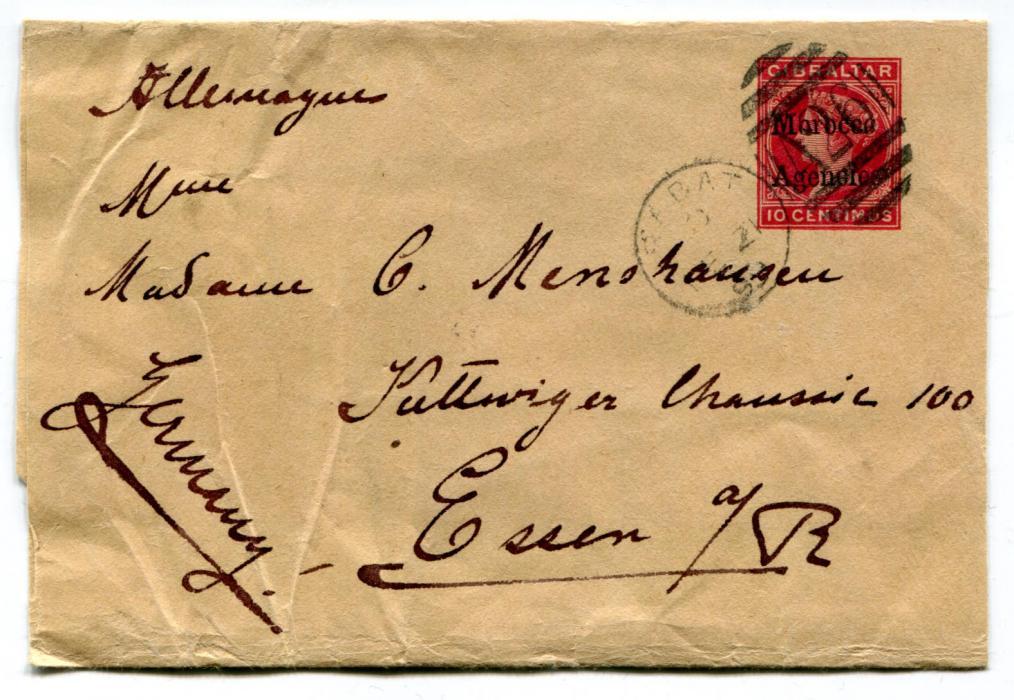 Allemagne
GIBRALTAR
Morocco
Agencies
10 CENTIMOS
Mme
Madame C. Menshausen
Kettwiger Chaussie 100
Germany.
Essen a/R